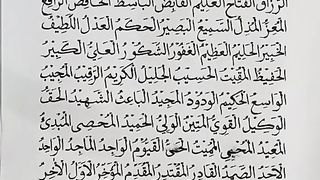 الرزاق الفتاح العليم القابض الباسط الخافض الرافع
المعز المذل السميع البصير الحكم العدل اللطيف
الخبير الحليم العظيم الغفور الشكور العلي الكبير
الحفيظ المقيت الحسيب الجليل الكريم الرقيب المجيب
الواسع الحكيم الودود المجيد الباعث الشهيد الحق
الوكيل القوي المتين الولي الحميد المحصي المبدئ
المعيد المحيي المميت الحي القيوم الواجد الماجد الواحد
الأحد الصمد القادر المقتدر المقدم المؤخر الأول الآخر